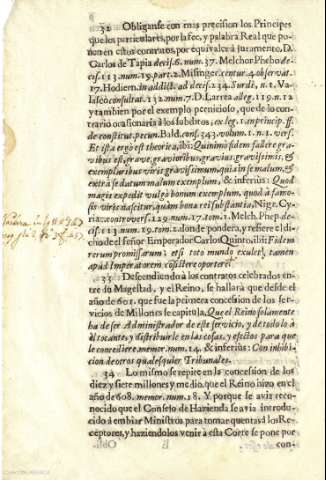 32 Obliganse con mas precision los Principes
que los particulares, por la fee, y palabra Real que po-
nen en estos contratos, por equivaler à juramento, D.
Carlos de Tapia decis. 6. num. 37. Melchor Phebo de-
cis. 113. num. 19. part. 2. Misinger. centur. 4. observat.
17. Hodiern. in addict. ad decis. 234. Surdi, n. 1. Va-
lasco consultat. 132. num. 7. D. Larrea alleg. 119. n. 12
y tambien por el exemplo pernicioso, que de lo con-
trario ocasionaria à los subditos, ex leg. 1. in princip. ff.
de constitut. pecun. Bald. cons. 343. volum. 1. n. 1. vers.
Et ista ergo est theorica, ibi: Quinimò fidem fallere gra-
vibus est grave, gravioribus gravius, gravissimis, &
exemplaribus viris gravissimum, quia in se malum, &
extra se datum malum exemplum, & inferius: Quod
magis expedit vulgò bonum exemplum, quod à famo-
sis viris dascitur, quàm bona rei substantia, Nigr. Cy-
riac. controvers. 129. num. 17. tom. 1. Melch. Pheb. de-
cis. 113. num. 19. tom. 2. donde pondera, y refiere el di-
cho de el señor Emperador Carlos Quinto, ibi: Fidem
rerum promissarum; etsi toto mundo exulet, tamen
apud Imperatorem consistere oportere.
33 Descendiendo à los contratos celebrados en-
tre su Magestad, y el Reino, se hallarà que desde el
año de 601. que fue la primera concession de los Ser-
vicios de Millones se capitula, Que el Reino solamente
ha de ser Administrador de este servicio, y de todo lo à
èl tocante, y distribuirle en las cosas, y efectos para que
se concediere. memor. num. 14. & inferius: Con inhibi-
cion de otros qualesquier Tribunales.
34 Lo mismo se repite en la concession de los
diez y siete millones y medio, que el Reino hizo en el
año de 608. memor. num. 18. Y porque se avia reco-
nocido que el Consejo de Hazienda se avia introdu-
cido à embiar Ministros para tomar quentas à los Re-
ceptores, y haziendolos venir à esta Corte se pone por
con-